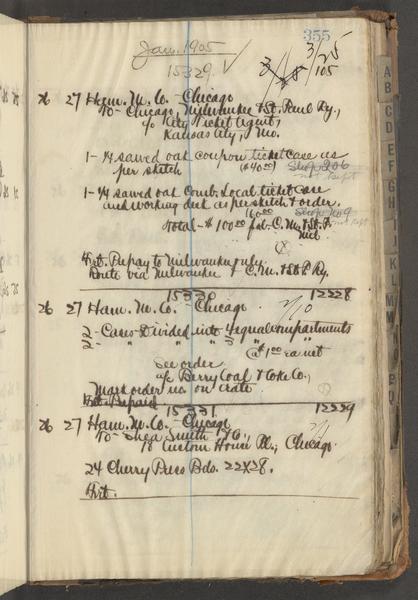 355
Jan. 1905
3/25
15329 ✓
3/8
105
26 27 Ham. M. Co. - Chicago
To - Chicago, Milwaukee & St. Paul Ry.,
c/o City Ticket Agent,
Kansas City, Mo.
1 - 1/4 sawed oak coupon ticket case as
per sketch ($40.00) Shop 206
1 - 1/4 sawed oak Comb. Local ticket case
and working desk as per sketch & order.
160.00
Total - $100.00 fob. C. M. & St. P.
Frt. Prepay to Milwaukee only.
Route via Milwaukee & C. M. & St. P. Ry.
15330 12228
26 27 Ham. M. Co. - Chicago 2/10
2 - Cases Divided into 4 equal compartments
2 - " " " 3 "
@ $1.00 ea net
See order
a/c Berry Coal & Coke Co.,
Mark order no. on crate
Frt. Prepaid
15331 12229
26 27 Ham. M. Co. - Chicago
To - Shea Smith & Co.
18 Custom House Pl., Chicago.
24 Cherry Press Bds. 22X28.
Frt.
A
B
C
D
E
F
G
H
K
L
M